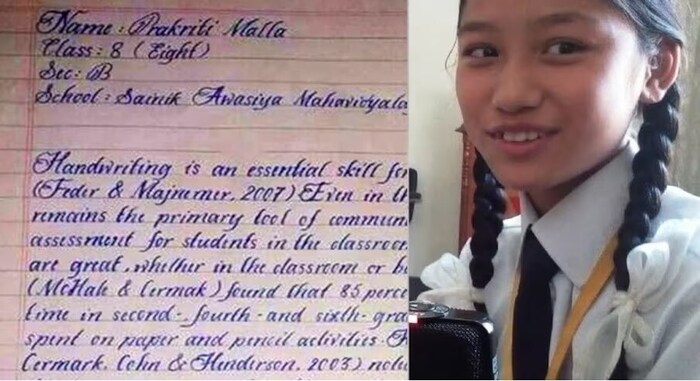 Name : Prakriti Malla
Class : 8 ( Eight)
Sec : B
School : Sainik Awasiya Mahavidyala
Handwriting is an essential skill for
(Feder & Majnemer, 2007) Even in th
remains the primary tool of commun
assessment for students in the classroo
are great, whether in the classroom or
(McHale & Cermak ) found that 85 perce
time in second - fourth - and sixth - gra
spent on paper and pencil activities.
Cermark, Cohn & Henderson, 2003) note